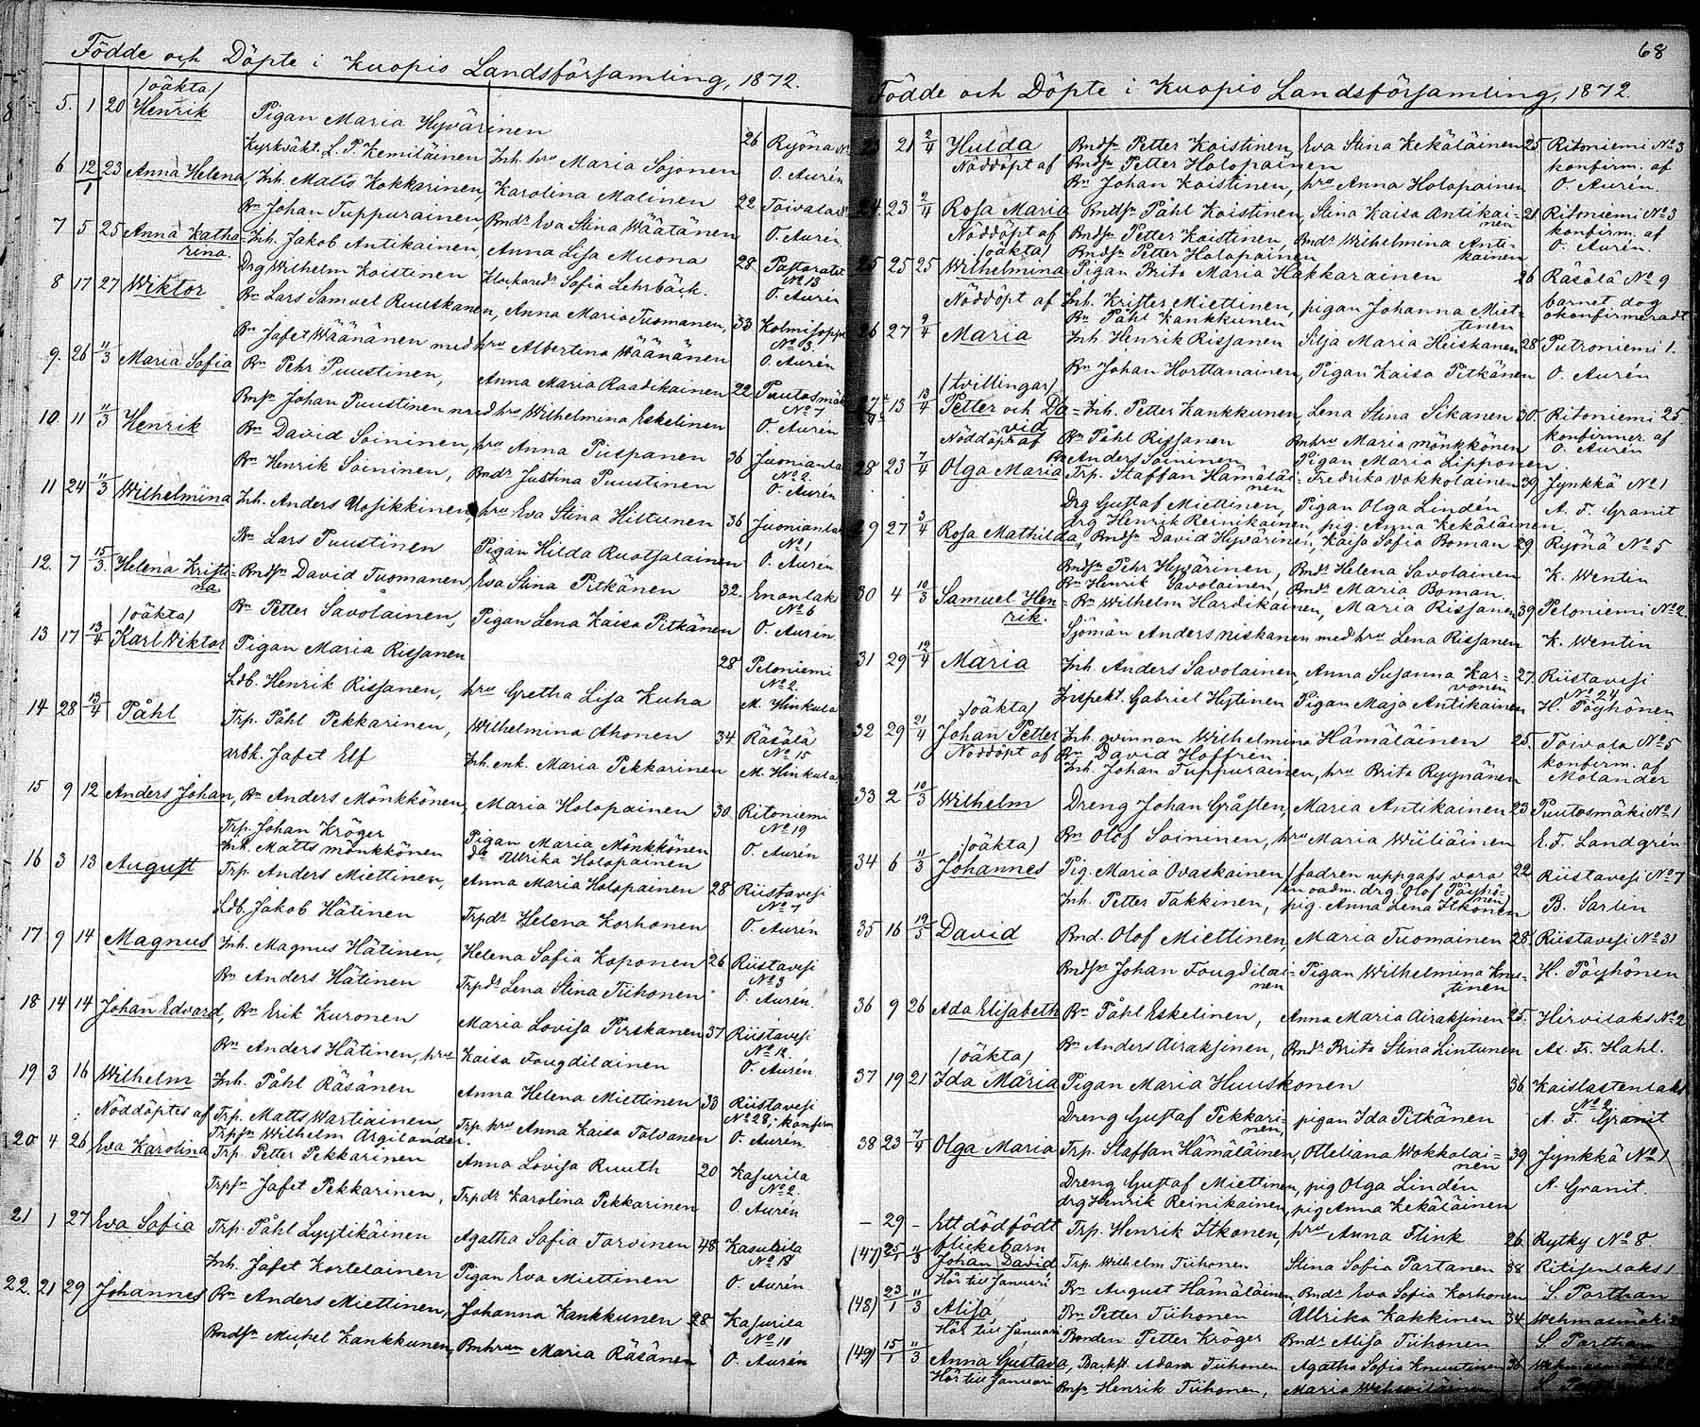 Födde och Döpte i Kuopio Landsförsamling, 1872.
/oäkta/
5. 1 20 Henrik Pigan Maria Hyvärinen 26 Ryönä Nº
Kyrkväkt. L. P. Kemiläinen Inh. hru Maria Sojonen O. Aurén
6 12/1 23 Anna Helena Inh. Matts Kokkarinen, Karolina Malinen 22 Toivala
Bn Johan Tuppurainen, Bndr Eva Stina Wäätänen O. Aurén
7 5 25 Anna Katha- Inh. Jakob Antikainen, Anna Lisa Muona 28 Pastoratet
rina. Drg Wilhelm Koistinen Klockaredr Sofia Lehrbäck. Nº 13
O. Aurén
8 17 27 Wiktor Bn Lars Samuel Ruuskanen, Anna Maria Tuomanen, 33 Kolmisoppi
Bn Jafet Wäänänen med hru Albertina Wäänänen Nº 3
O. Aurén
9. 26 11/3 Maria Sofia Bn Pehr Puustinen, Anna Maria Raadikainen 22 Puutosmäki
Bnsn Johan Puustinen med hru Wilhelmina Eskelinen Nº 7
O. Aurén
10 11 11/3 Henrik Bn David Soininen, hru Anna Puspanen 36 Juonianlahti
Bn Henrik Soininen, Bndr Justina Puustinen Nº 2
O. Aurén
11 24 11/3 Wilhelmina Inh. Anders Uosikkinen, hru Eva Stina Hiltunen 36 Juonianlahti
Bn Lars Puustinen Pigan Hilda Ruotsalainen Nº 1
O. Aurén
12. 7 15/3. Helena Kristi- Bndsn David Tuomanen, Eva Stina Pitkänen 32. Enonlaks
na Bn Petter Savolainen, Pigan Lena Kaisa Pitkänen Nº 6
O. Aurén
/oäkta/
13 17 13/4 Karl Wiktor Pigan Maria Rissanen 28 Peloniemi
Ldb. Henrik Rissanen, hru Gretha Lisa Kuha Nº 2.
M. Hinkula
14 28 13/4 Påhl Trp. Påhl Pekkarinen, Wilhelmina Ahonen 34 Räsälä
arbk. Jafet Elf Inh. enk. Maria Pekkarinen Nº 15
M. Hinkula
15 9 12 Anders Johan, Bn Anders Mönkkönen, Maria Holopainen 30. Ritoniemi
Trp. Johan Kröger Pigan Maria Mönkkönen Nº 19
Inh. Matts Mönkkönen do Ulrika Holopainen O. Aurén
16 3 13 August Trp. Anders Miettinen, Anna Maria Holopainen 28 Riistavesi
Ldb. Jakob Hätinen Trpdr Helena Korhonen Nº 7
O. Aurén
17 9 14 Magnus Inh. Magnus Hätinen, Helena Sofia Koponen 26 Riistavesi
Bn Anders Hätinen Trpdr Lena Stina Tiihonen Nº 3
O. Aurén.
18 14 14 Johan Edvard, Bn Erik Kuronen Maria Lovisa Pirskanen 37 Riistavesi
Bn Anders Hätinen, hru Kaisa Fougdilainen Nº 12
O. Aurén
19 3 16 Wilhelm Inh. Påhl Räsänen Anna Helena Miettinen 33 Riistavesi
Nöddöptes af Trp. Matts Wartiainen, Trp. hru Anna Kaisa Tolvanen Nº 28, konfirm
Trpsn Wilhelm Argillander. O. Aurén.
20 4 26 Eva Karolina Trp. Petter Pekkarinen Anna Lovisa Ruuth 20 Kasurila
Trpsn Jafet Pekkarinen, Trpdr Karolina Pekkarinen Nº 2.
O. Aurén
21 1 27 Eva Sofia Trp. Påhl Lyytikäinen Agatha Sofia Tarvinen 48 Kasurila
Inh. Jafet Kortelainen Pigan Eva Miettinen Nº 18
O. Aurén
22. 21 29 Johannes Bn Anders Miettinen, Johanna Kankkunen 28 Kasurila
Bndsn Michel Kankkunen, Bnhrun Maria Räsänen Nº 10
O. Aurén
68
Födde och Döpte i Kuopio Landsförsamling, 1872.
23 21 2/4 Hulda Bndsn Petter Koistinen, Eva Stina Kekäläinen 25 Ritoniemi Nº 3
Nöddöpt af Bndsn Petter Holopainen konfirm. af
Bn Johan Koistinen, hru Anna Holopainen O. Aurén.
24. 23 2/4 Rosa Maria Bndsn Påhl Koistinen, Stina Kaisa Antikai- 21 Ritoniemi Nº 3
nen
Nöddöpt af Bndsn Petter Koistinen, Bndr Wilhelmina Anti- konfirm. af
/oäkta/ Bndsn Petter Holopainen kainen O. Aurén.
25 25 25 Wilhelmina Pigan Brita Maria Hakkarainen 26 Räsälä Nº 9
Nöddöpt af Inh. Krister Miettinen, pigan Johanna Miet- barnet dog
Bn Påhl Kankkunen tinen okonfirmeradt
26 27 2/4 Maria Inh Henrik Rissanen Silja Maria Heiskanen 28 Putroniemi 1.
Bn Johan Horttanainen, Pigan Kaisa Pitkänen O. Aurén
/tvillingar/
27 13 13/4 Petter och Da- Inh. Petter Kankkunen, Lena Stina Sikanen 30. Ritoniemi 25.
vid
Nöddöpt af Bn Påhl Rissanen Bnhru Maria Mönkkönen konfirmer. af
Bn Anders Soininen Pigan Maria Lipponen. O. Aurén
28 23 7/4 Olga Maria Trp. Staffan Hämäläi- Fredrika Vokkolainen 39 Jynkkä Nº 1
nen
Drg Gustaf Miettinen, Pigan Olga Lindén A. F. Granit
drg Henrik Reinikainen, pig. Anna Kekäläinen.
29 27 3/4 Rosa Mathilda, Bndsn David Hyvärinen, Kaisa Sofia Boman 29 Ryönä Nº 5
Bndsn Pehr Hyvärinen, Bndr Helena Savolainen K. Wentin
Bn Henrik Savolainen, Bndr Maria Boman.
30 4 10/3 Samuel Hen- Bn Wilhelm Hardikainen, Maria Rissanen 39 Peloniemi Nº 2.
rik. Sjöman Anders Niskanen med hru Lena Rissanen K. Wentin
31 29 12/4 Maria Inh. Anders Savolainen, Anna Susanna Kar- 27. Riistavesi
vonen Nº 24
Inspekt. Gabriel Hystinen Pigan Maja Antikainen H. Pöyhönen
/oäkta/
32 29 21/4 Johan Petter Inh. qvinnan Wilhelmina Hämäläinen 25. Toivala Nº 5
Nöddöpt af Bn David Hoffrén konfirm. af
Inh. Johan Tuppurainen, hru Brita Ryynänen Molander
33 2 10/3 Wilhelm Dreng Johan Gråsten, Maria Antikainen 23 Puutosmäki Nº 1
Bn Olof Soininen, hru Maria Wiiliäinen E. F. Landgrén
/oäkta/
34 6 11/3 Johannes Pig. Maria Ovaskainen /fadren uppgafs vara 22 Riistavesi Nº 7
en oadm. drg. Olof Pöyhö-
nen/
Inh. Petter Takkinen, pig. Anna Lena Itkonen B. Sarlin
35 16 12/5 David Bnd. Olof Miettinen, Maria Tuomainen 28 Riistavesi Nº 31
Bndsn Johan Fougdilai- Pigan Wilhelmina Knu- H. Pöyhönen
nen tinen
36 9 26 Ada Elisabeth Bn Påhl Eskelinen, Anna Maria Airaksinen 25. Hirvilaks Nº 2
Bn Anders Airaksinen, Bndr Brita Stina Lintunen Al. Fr. Hahl.
/oäkta/
37 19 21 Ida Maria Pigan Maria Huuskonen 36 Kaislastenlaks
Nº 2
Dreng Gustaf Pekkari- pigan Ida Pitkänen A. F. Granit
nen,
38 23 7/4 Olga Maria Trp. Staffan Hämäläinen, Otteliana Wokkolai- 39 Jynkkä Nº 1
nen
Dreng Gustaf Miettinen, pig Olga Lindén A. Granit.
drg Henrik Reinikainen, pig Anna Kekäläinen
– 29 – Ett dödfödt Trp. Henrik Itkonen, hru Anna Flink 26 Rytky Nº 8
flickebarn
(47) 25/1 11/3 Johan David Trp. Wilhelm Tiihonen Stina Sofia Partanen 38 Ritisenlaks 1
Hör till Januari Bn August Hämäläinen Bndr Eva Sofia Korhonen S. Parthan
(48) 23/1 11/3 Alisa Bn Petter Tiihonen Allrika Kakkinen 34 Wehmasmäki
Hör till Januari Bonden Petter Kröger Bndr Alisa Tiihonen S. Parthan
(49) 15/1 11/3 Anna Gustava, Backst. Adam Tiihonen Agatha Sofia Knuutinen 36
Hör till Januari Bnsn Henrik Tiihonen, Maria